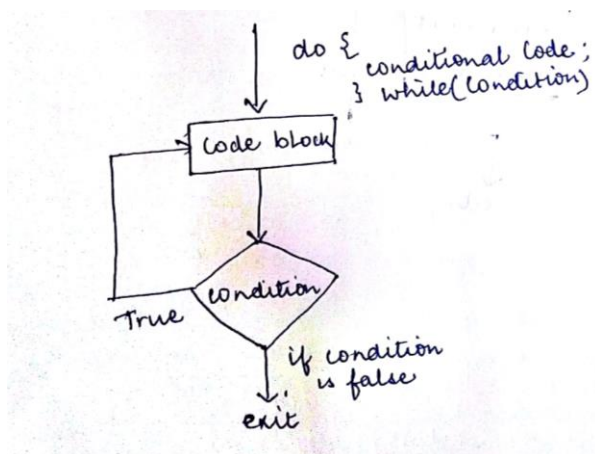 do {
conditional Code;
} while(Condition)
Code block
condition
True
if condition
is false
exit